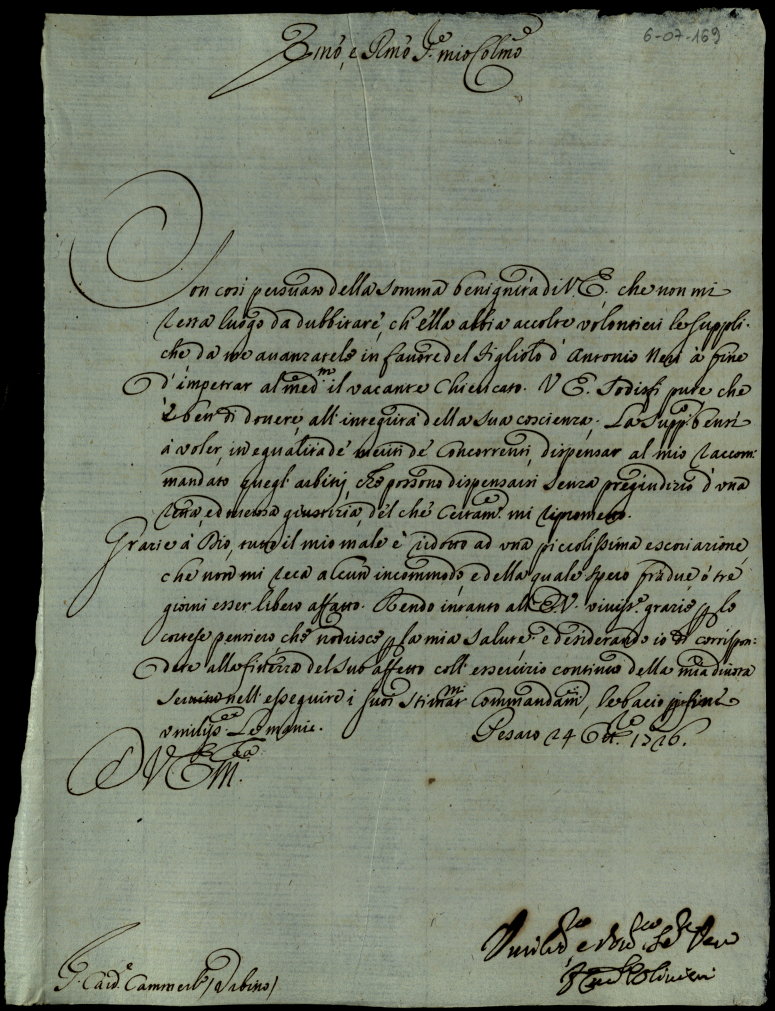 6-07-169
Emo, e Rmo Sr. mio Colmo
Son così persuaso della somma benignità di V.E. che non mi
resta luogo da dubbitare, ch'ella abbia accolte volontieri le suppli-
che da me avanzatele in favore del figliolo d'Antonio Neri à fine
d'impetrar al medmo il vacante Chiericato. V.E. sodisfi pure che
è ben di dovere, all'integrità della sua coscienza. La suppco bensì
à voler, in egualità de' meriti de' Concorrenti, dispensar al mio raccom-
mandato quegl'arbitrij che possono dispensarsi senza pregiudizio d'una
retta, ed onesta giustizia, del che certamte mi riprometto.
Grazie à Dio, tutto il mio male è ridotto ad una piccolissima escoriazione
che non mi reca alcun incommodo, e della quale spero frà due, ò tré
giorni esser libero affatto. Rendo intanto all'E.V. vivisse grazie per lo
cortese pensiero, che nodrisce per la mia salute. e desiderando io di corrispon-
dere alla finezza del suo affetto coll'esercizio continuo della mia divota
servitù nell'esseguire i suoi stimatmi Commandamti, le bacio per fine
umilisse le manie.
Pesaro 24 Otte. 1726.
D V. Emza
Umilmo e Devmo Sere Vero
Olivieri
S. Card. Cammerlo (Albino)